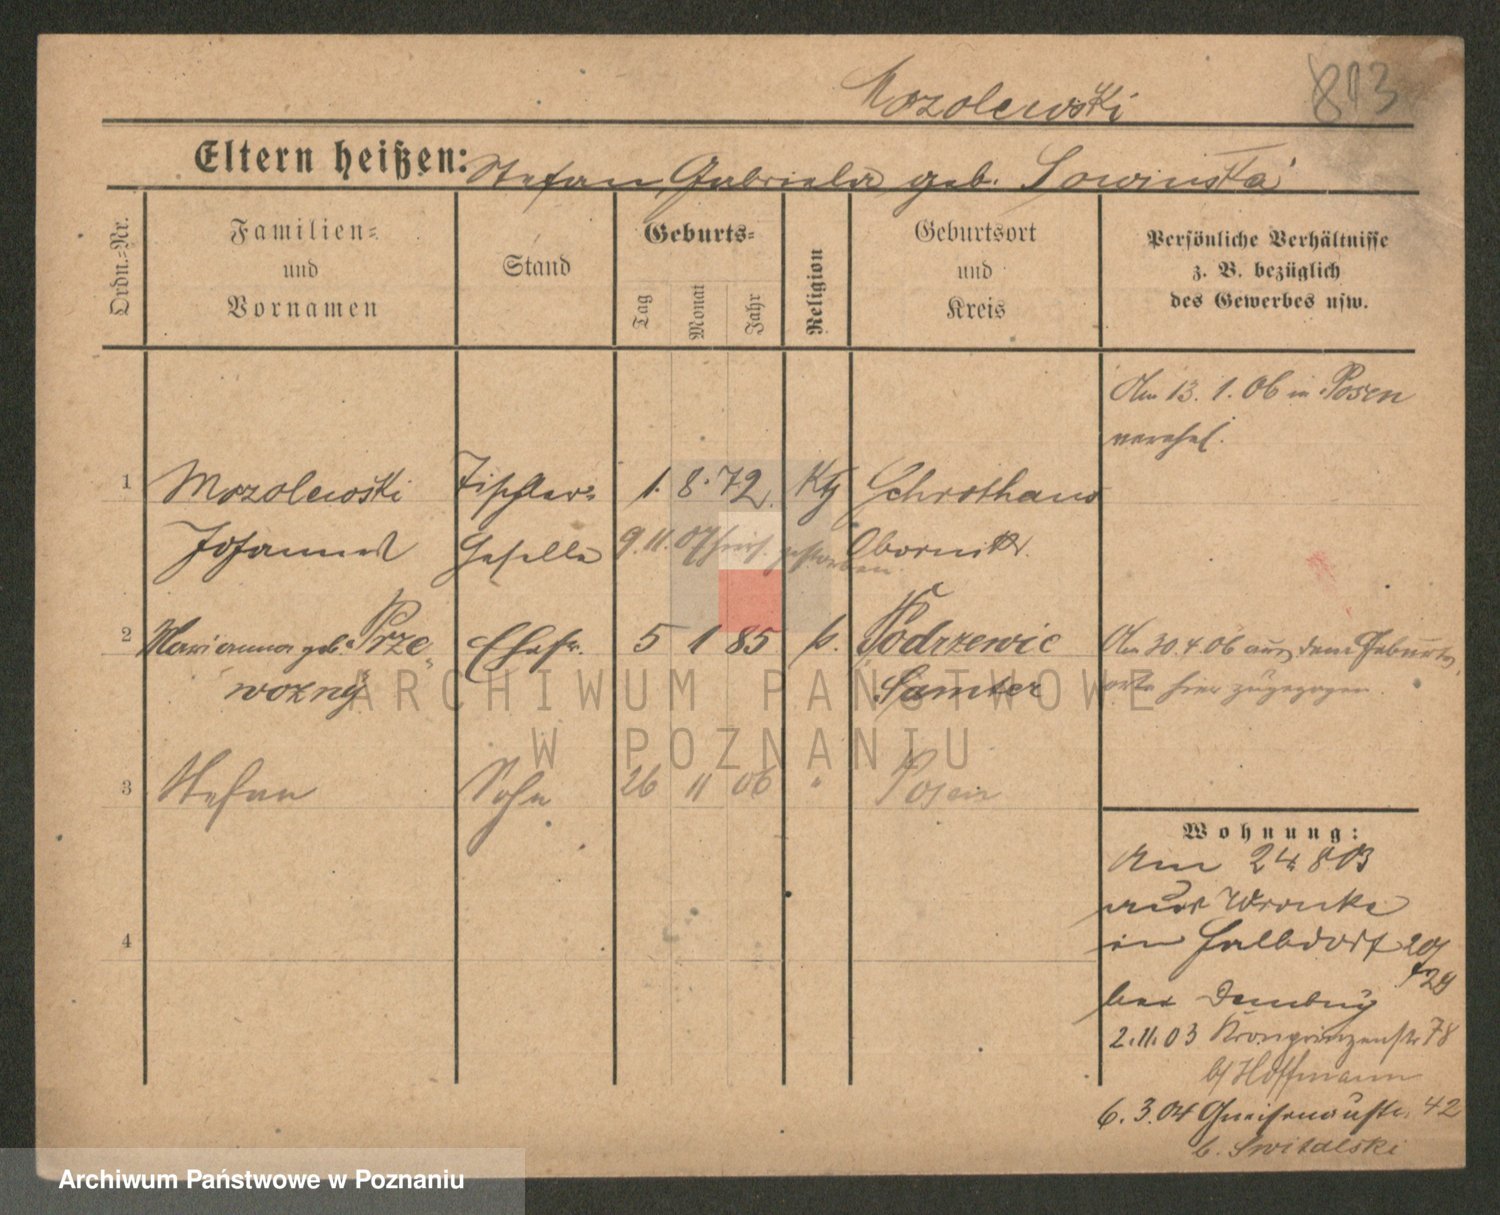 Mozolewski 813
Eltern heißen: Stefan Gabriela geb. Sowinska
Ordn.=Nr. Familien= und Vornamen Stand Geburts= Tag Monat Jahr Religion Geburtsort und Kreis Persönliche Verhältnisse z. B. bezüglich des Gewerbes usw.
Am 13. 1. 06 in Posen
verehel.
1 Mozolewski Tischler= 1. 8. 72. Kth Schrothaus
Johannes Geselle 9. 11. 07 hier gestorben Obornik.
2 Marianna geb. Prze= Ehefr. 5 1 85 k. Podrzewie Am 30. 4. 06 aus dem Geburts
wozny Samter orte hier zugezogen.
ARCHIWUM PAŃSTWOWE
W POZNANIU
3 Stefan Sohn 26 11 06 " Posen
Wohnung:
Am 24 8 03
aus Wronke
in Halbdorf 20
29
bei Dembny
2.11.03 Kronprinzenstr 78
b/ Hoffmann
6. 3. 04 Gneisenaustr. 42
b. Switalski
4
Archiwum Państwowe w Poznaniu